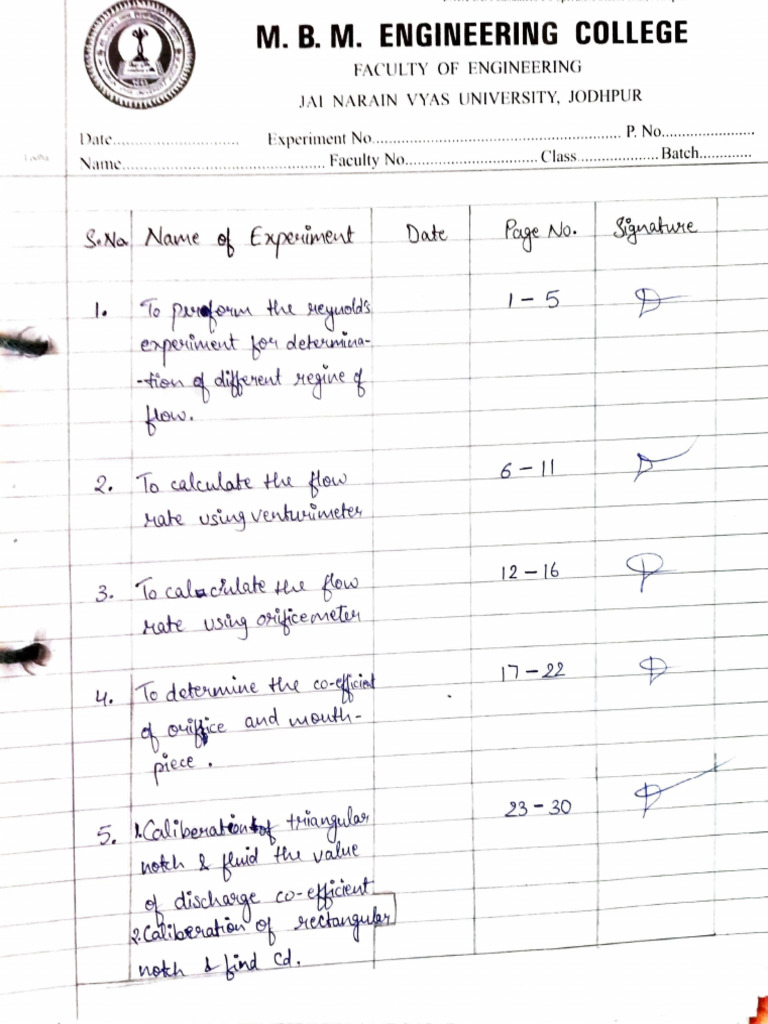 M. B. M. ENGINEERING COLLEGE
FACULTY OF ENGINEERING
JAI NARAIN VYAS UNIVERSITY, JODHPUR
Date............................ Experiment No.............................................................. P. No.......................
Name.................................................. Faculty No................................. Class.................... Batch.............
S.No. Name of Experiment Date Page No. Signature
1. To perform the reynold's 1 - 5
experiment for determina-
-tion of different regine of
flow.
2. To calculate the flow 6 - 11
rate using venturimeter
3. To calculate the flow 12 - 16
rate using orificemeter
4. To determine the co-efficient 17 - 22
of orifice and mouth-
piece.
5. 1. Caliberation of triangular 23 - 30
notch & fluid the value
of discharge co-efficient
2. Caliberation of rectangular
notch & find Cd.